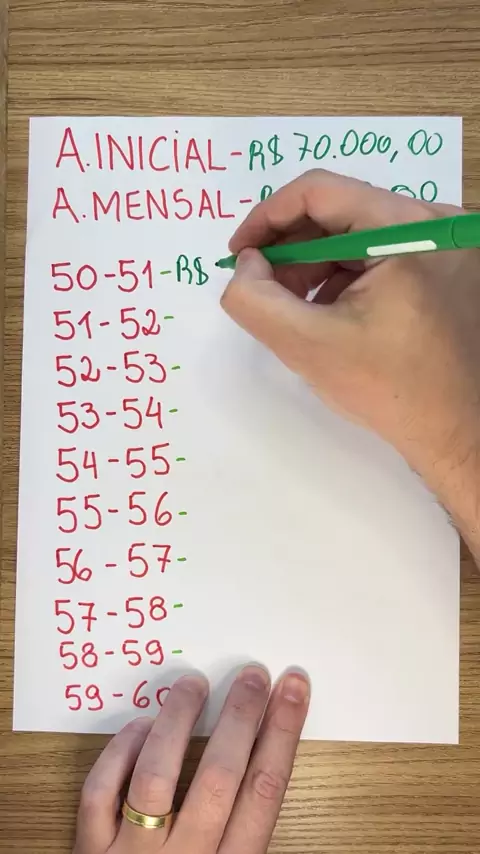 A.INICIAL-R$ 70.000,00
A.MENSAL-
50-51-R$
51-52-
52-53-
53-54-
54-55-
55-56-
56-57-
57-58-
58-59-
59-